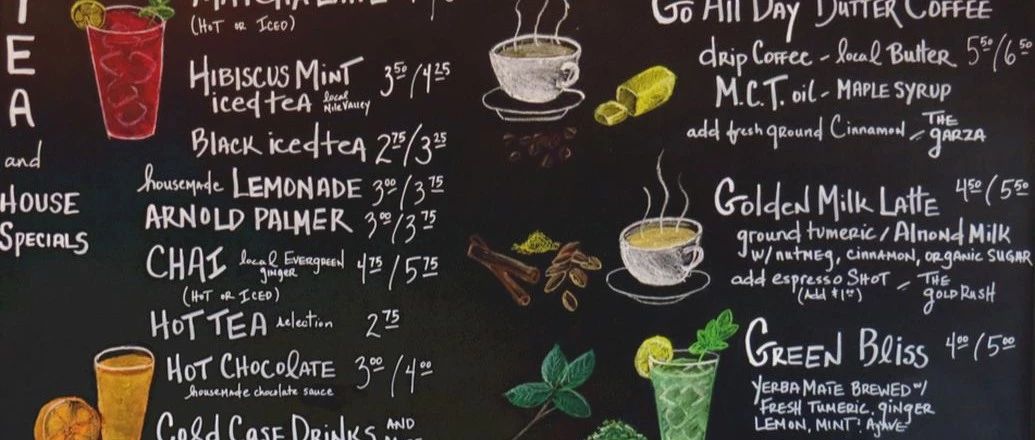 TEA
and
HOUSE
SPECIALS
(HOT OR ICED)
HIBISCUS MINT 3⁵⁰/4²⁵
iced teA local Nile Valley
BLACK iced teA 2⁷⁵/3²⁵
housemade LEMONADE 3⁰⁰/3⁷⁵
ARNOLD PALMER 3⁰⁰/3⁷⁵
CHAI local EVERGREEN ginger 4⁷⁵/5⁷⁵
(HOT OR ICED)
HOT TEA selection 2⁷⁵
HOT CHOCOLATE 3⁰⁰/4⁰⁰
housemade chocolate sauce
Cold Case DRINKS AND
Go All DAY BUTTER COFFEE
drip Coffee - local Butter 5⁵⁰/6⁵⁰
M.C.T. oil - MAPLE SYRUP
add fresh ground Cinnamon - THE GARZA
Golden Milk LATTE 4⁵⁰/5⁵⁰
ground tumeric/Almond Milk
w/ nutmeg, cinnamon, organic SUGAR
add espresso SHOT - THE GOLD RUSH
(Add $1⁰⁰)
GREEN Bliss 4⁰⁰/5⁰⁰
YERBA MATE BREWED w/
FRESH TUMERIC, ginger
LEMON, MINT, Agave